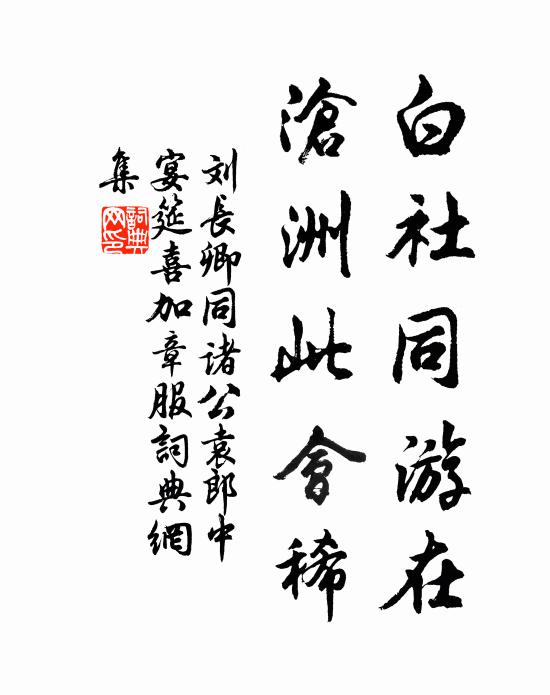 白社同游在
滄洲此會稀
刘長卿同诸公袁郎中
宴筵喜加章服詞典網
集
詞典
网印